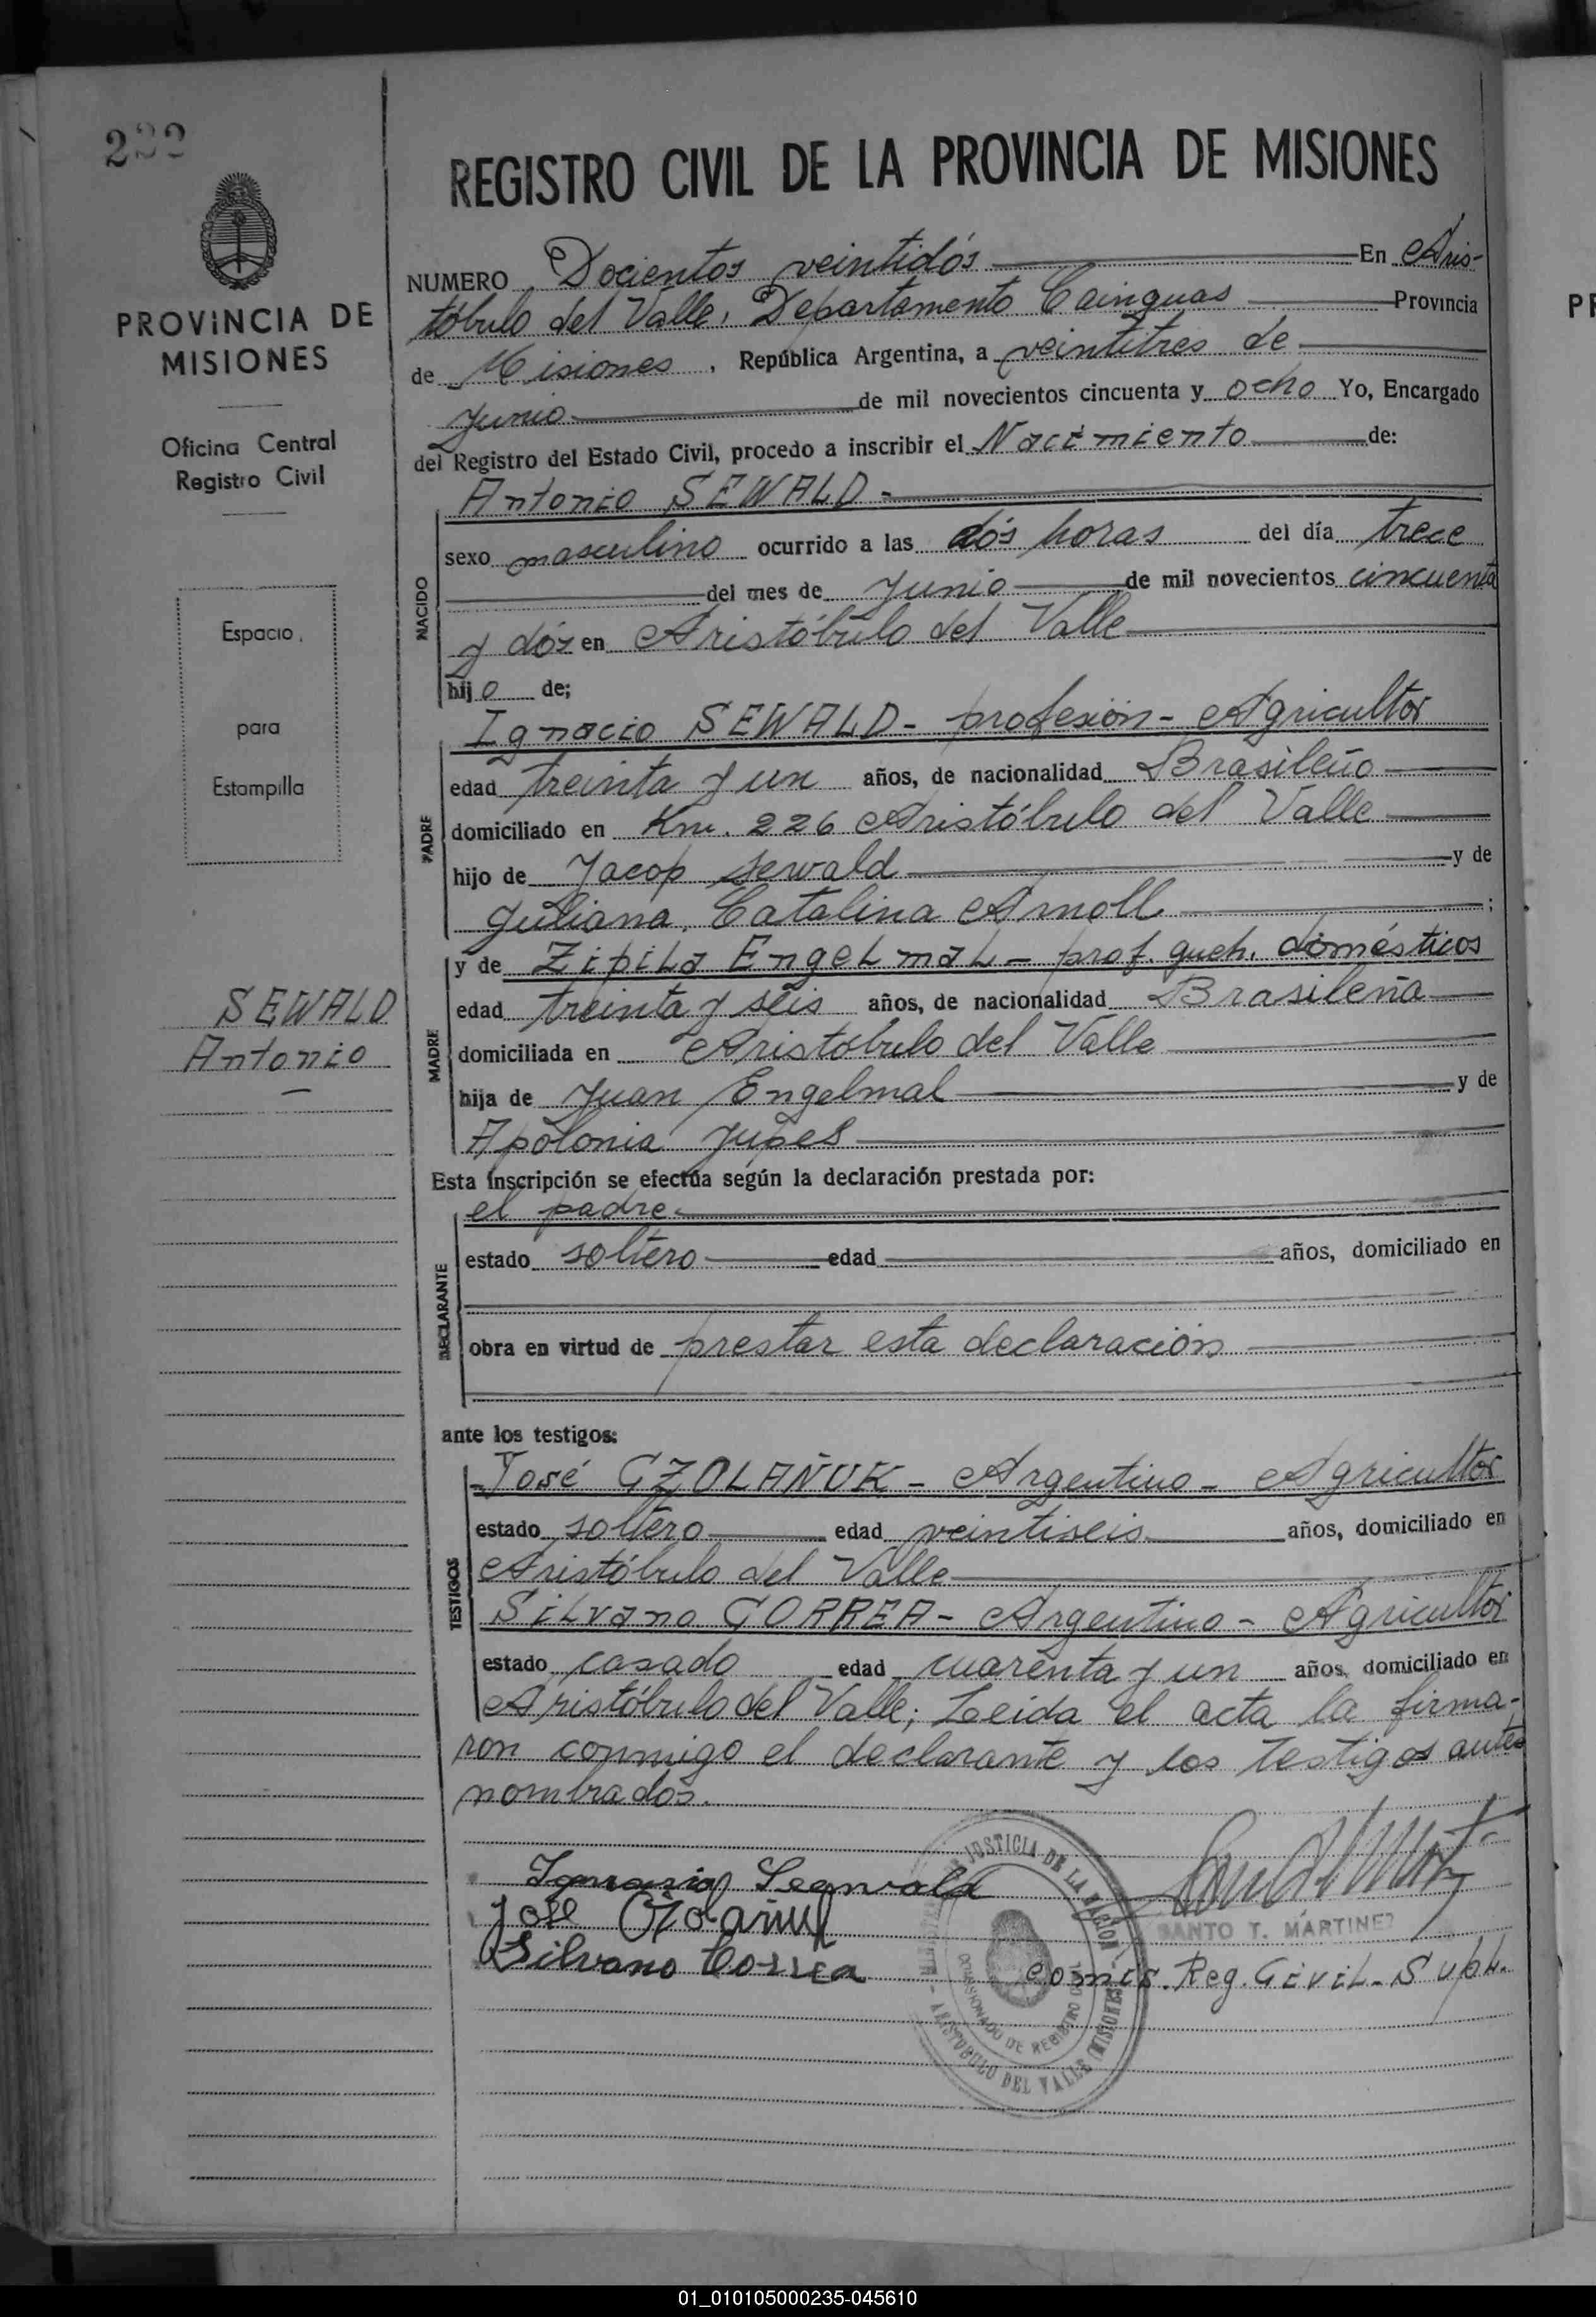 222
PROVINCIA DE
MISIONES
Oficina Central
Registro Civil
Espacio
para
Estampilla
SEWALD
Antonio
REGISTRO CIVIL DE LA PROVINCIA DE MISIONES
NUMERO Docientos veintidós En Aris-
tóbulo del Valle, Departamento Cainguas Provincia
de Misiones, República Argentina, a veintitres de
Junio de mil novecientos cincuenta y ocho Yo, Encargado
del Registro del Estado Civil, procedo a inscribir el Nacimiento de:
Antonio SEWALD -
NACIDO
sexo masculino ocurrido a las dós horas del día trece
del mes de Junio de mil novecientos cincuenta
y dós en Aristóbulo del Valle
hijo de;
Ignacio SEWALD - profesión - Agricultor
PADRE
edad treinta y un años, de nacionalidad Brasileño
domiciliado en Km. 226 Aristóbulo del Valle
hijo de Jacop Sewald y de
Juliana Catalina Arnoll ;
y de Zipila Engelmal - prof. queh. domésticos
MADRE
edad treinta y seis años, de nacionalidad Brasileña
domiciliada en Aristobulo del Valle
hija de Juan Engelmal y de
Apolonia Jupes
Esta inscripción se efectúa según la declaración prestada por:
el padre
DECLARANTE
estado soltero edad años, domiciliado en
obra en virtud de prestar esta declaración
ante los testigos:
José CZOLAÑUK - Argentino - Agricultor
TESTIGOS
estado soltero edad veintiseis años, domiciliado en
Aristóbulo del Valle
Silvano CORREA - Argentino - Agricultor
estado casado edad cuarenta y un años, domiciliado en
Aristóbulo del Valle; Leida el acta la firma-
ron conmigo el declarante y los testigos antes
nombrados.
José Czolañuk
Silvano Correa
SANTO T. MARTINEZ
Comis. Reg. Civil - Supl.
JUSTICIA DE LA NACION
COMISIONADO DE REGISTRO
ARISTOBULO DEL VALLE (MISIONES)
01_010105000235-045610